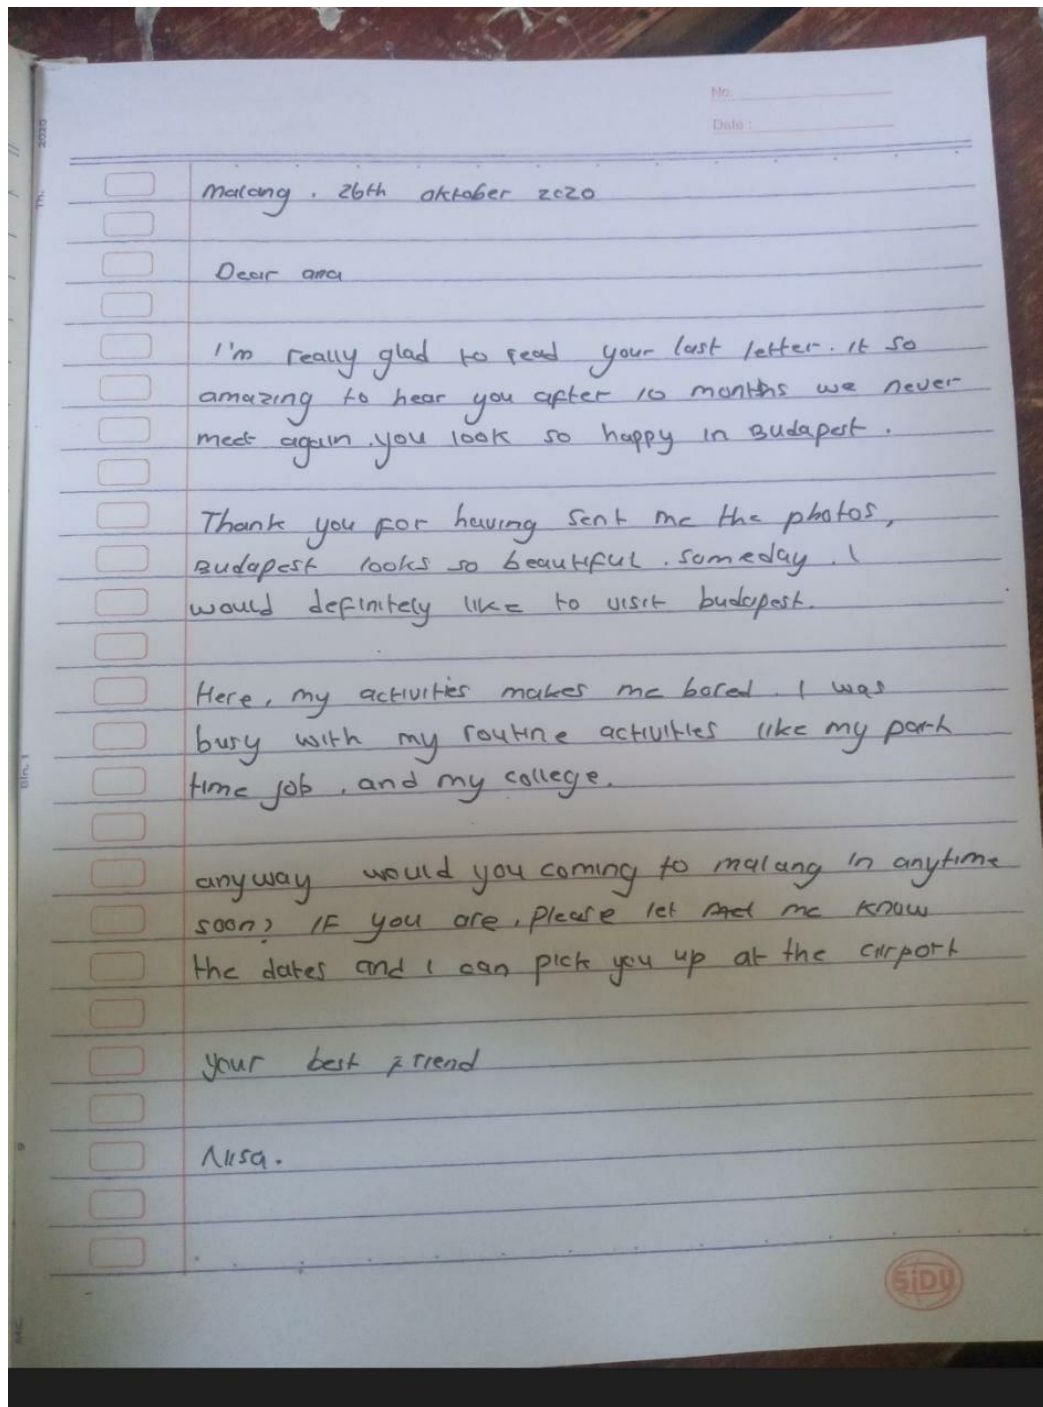 No.
Date :
2020
Th.
malang . 26th oktober 2020
Dear ana
I'm really glad to read your last letter. It so
amazing to hear you after 10 months we never
meet again . you look so happy in Budapest .
Thank you for having sent me the photos,
Budapest looks so beautiful . someday . I
would definitely like to visit budapest.
Here, my activities makes me bored . I was
busy with my routine activities like my part
time job , and my college.
anyway would you coming to malang in anytime
soon? IF you are, please let me know
the dates and I can pick you up at the airport
your best Friend
SiDU